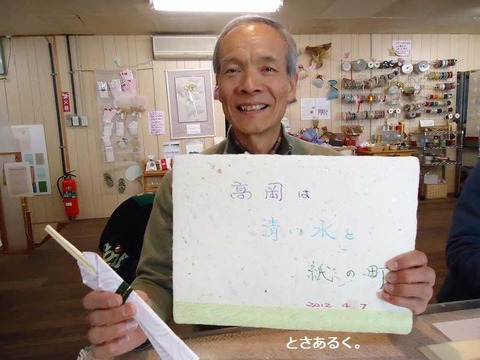 高岡は
清い水と
紙の町
2012.4.7
とさあるく。